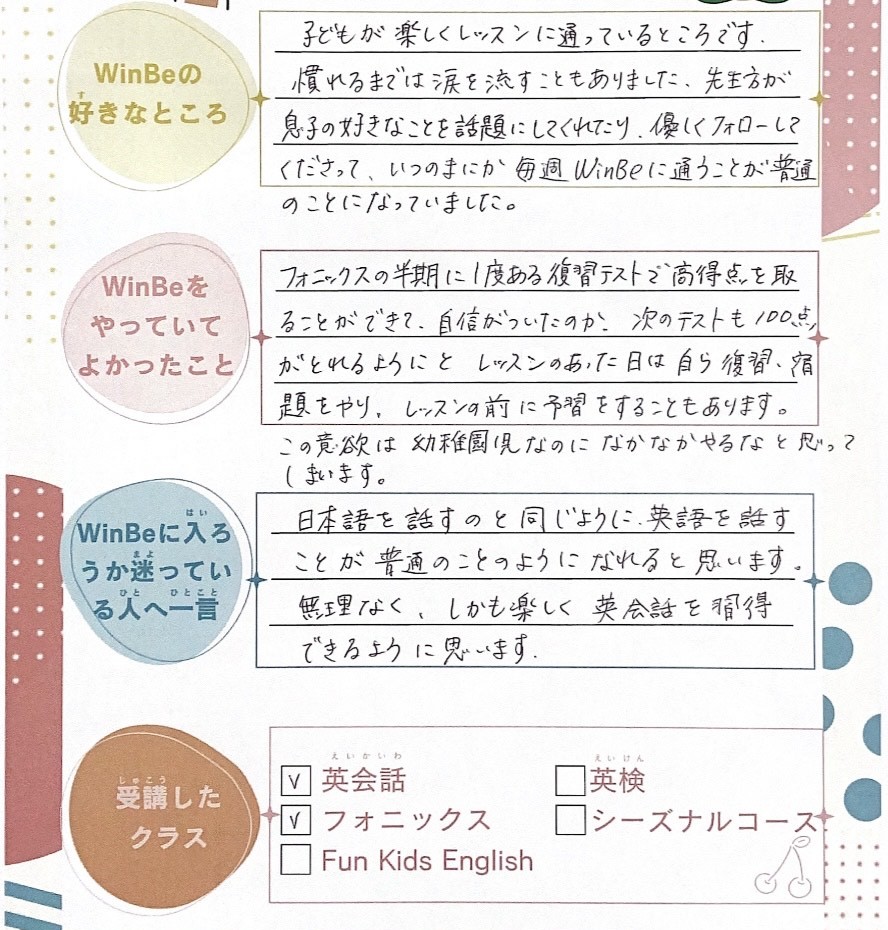 WinBeの
好きなところ
子どもが楽しくレッスンに通っているところです.
慣れるまでは涙を流すこともありました、先生方が
息子の好きなことを話題にしてくれたり、優しくフォローして
くださって、いつのまにか毎週WinBeに通うことが普通
のことになっていました。
WinBeを
やっていて
よかったこと
フォニックスの半期に1度ある復習テストで高得点を取
ることができて、自信がついたのか、次のテストも100点
がとれるようにと レッスンのあった日は自ら復習、宿
題をやり、レッスンの前に予習をすることもあります。
この意欲は幼稚園児なのになかなかやるなと思って
しまいます。
WinBeに入ろ
うか迷ってい
る人へ一言
日本語を話すのと同じように、英語を話す
ことが普通のことのようになれると思います。
無理なく、しかも楽しく英会話を習得
できるように思います.
受講した
クラス
✓ 英会話
英検
✓ フォニックス
シーズナルコース
Fun Kids English